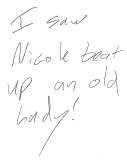 I saw
Nicole beat
up an old
Lady!